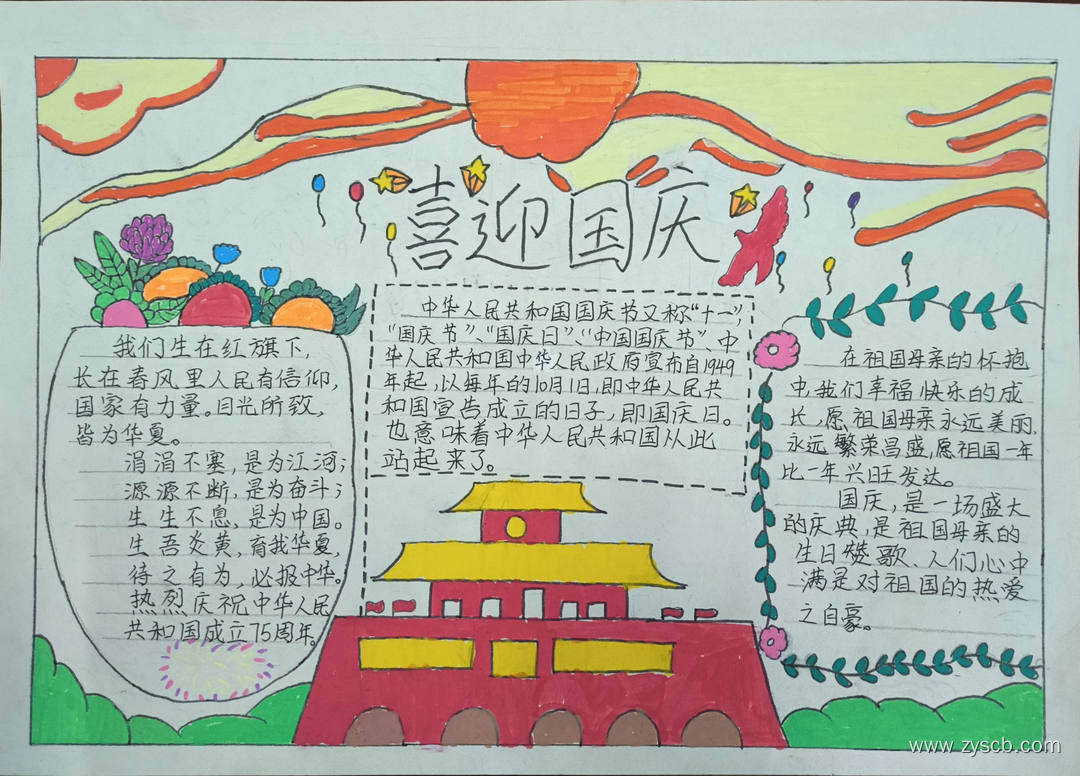 喜迎国庆
我们生在红旗下,
长在春风里人民有信仰,
国家有力量。目光所致,
皆为华夏。
涓涓不塞,是为江河;
源源不断,是为奋斗;
生生不息,是为中国。
生吾炎黄,育我华夏,
待之有为,必报中华。
热烈庆祝中华人民
共和国成立75周年。
中华人民共和国国庆节又称“十一”,
“国庆节”、“国庆日”、“中国国庆节”、中
华人民共和国中华人民政府宣布自1949
年起,以每年的10月1日,即中华人民共
和国宣告成立的日子,即国庆日。
也意味着中华人民共和国从此
站起来了。
在祖国母亲的怀抱
中,我们幸福快乐的成
长,愿祖国母亲永远美丽.
永远繁荣昌盛,愿祖国一年
比一年兴旺发达。
国庆,是一场盛大
的庆典,是祖国母亲的
生日赞歌、人们心中
满是对祖国的热爱
之自豪。
www.zyscb.com